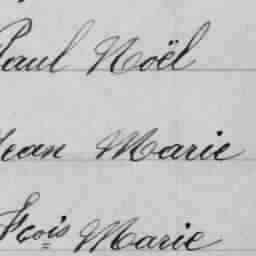 Paul Noël
Jean Marie
Fçois Marie